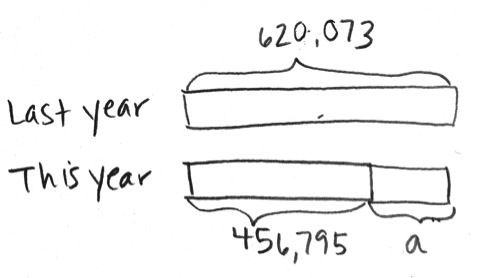 620,073
Last year
This year
456,795 a